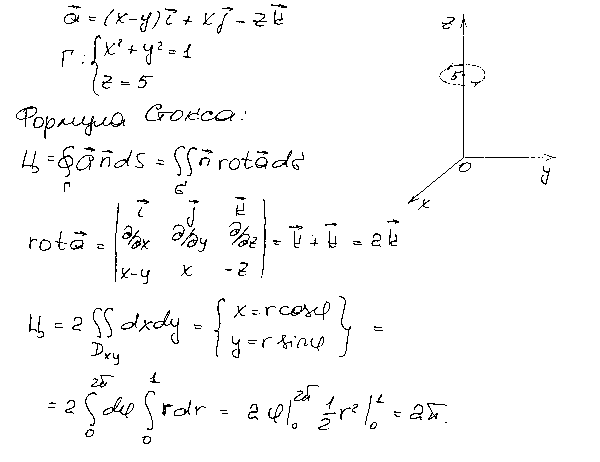 a⃗ = (x-y)i⃗ + xj⃗ - zk⃗
Г: { x² + y² = 1
z = 5
Формула Стокса:
Ц = ∮_Г a⃗ n⃗ dS = ∬_σ n⃗ rot a⃗ dσ
rot a⃗ = | i⃗ j⃗ k⃗
∂/∂x ∂/∂y ∂/∂z
x-y x -z | = k⃗ + k⃗ = 2k⃗
Ц = 2 ∬_{Dxy} dxdy = { x = r cosφ
y = r sinφ } =
= 2 ∫_0^{2π} dφ ∫_0^1 r dr = 2 φ|_0^{2π} 1/2 r² |_0^1 = 2π.
z
5
0
y
x